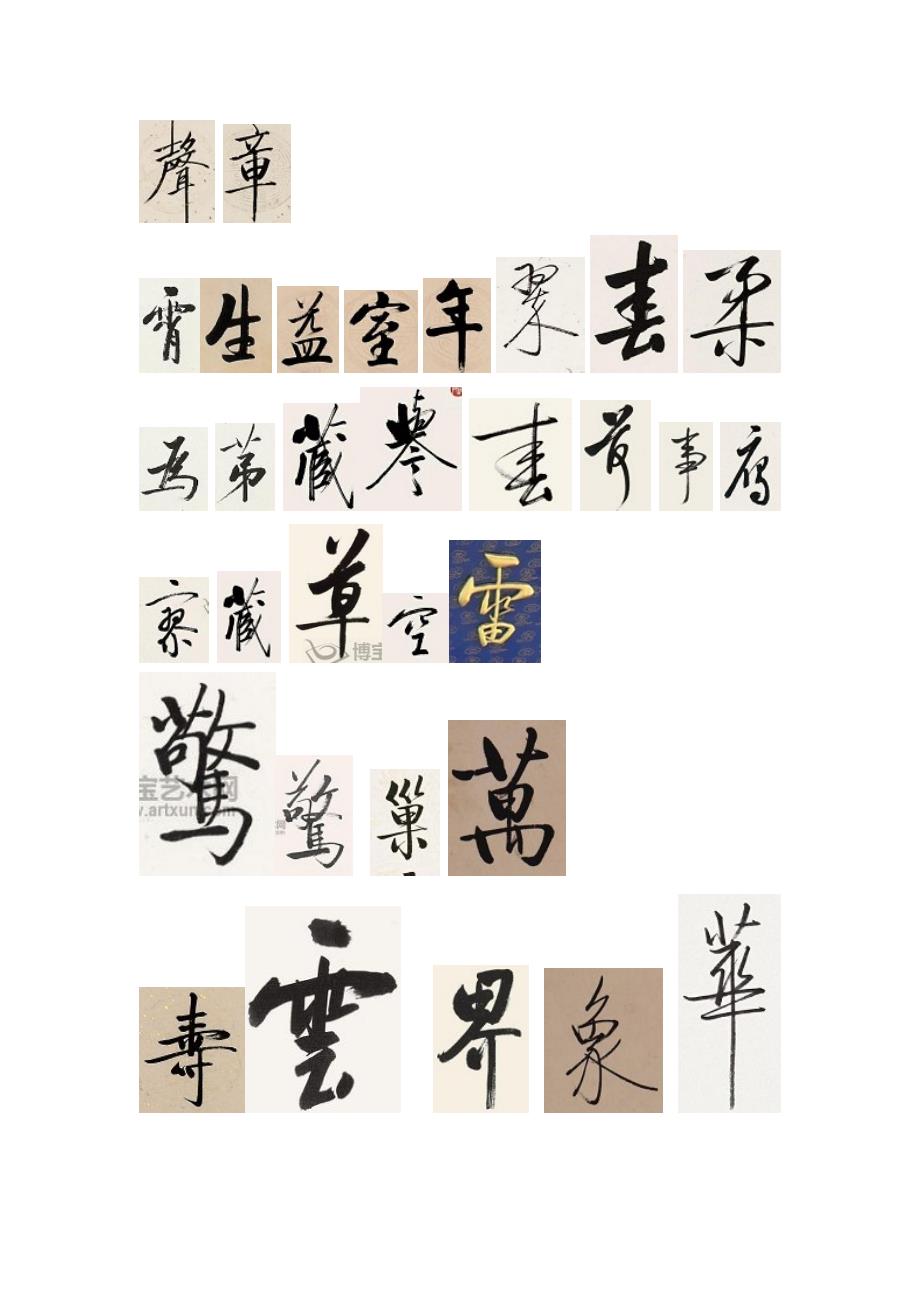 聲 章
霄 生 益 室 年 翠 春 柔
為 第 藏 琴 春 芳 事 雁
察 藏 草 空 雷
博宝
驚 驚 巢 萬
宝艺术网
www.artxun.com
壽 雲 界 象 華